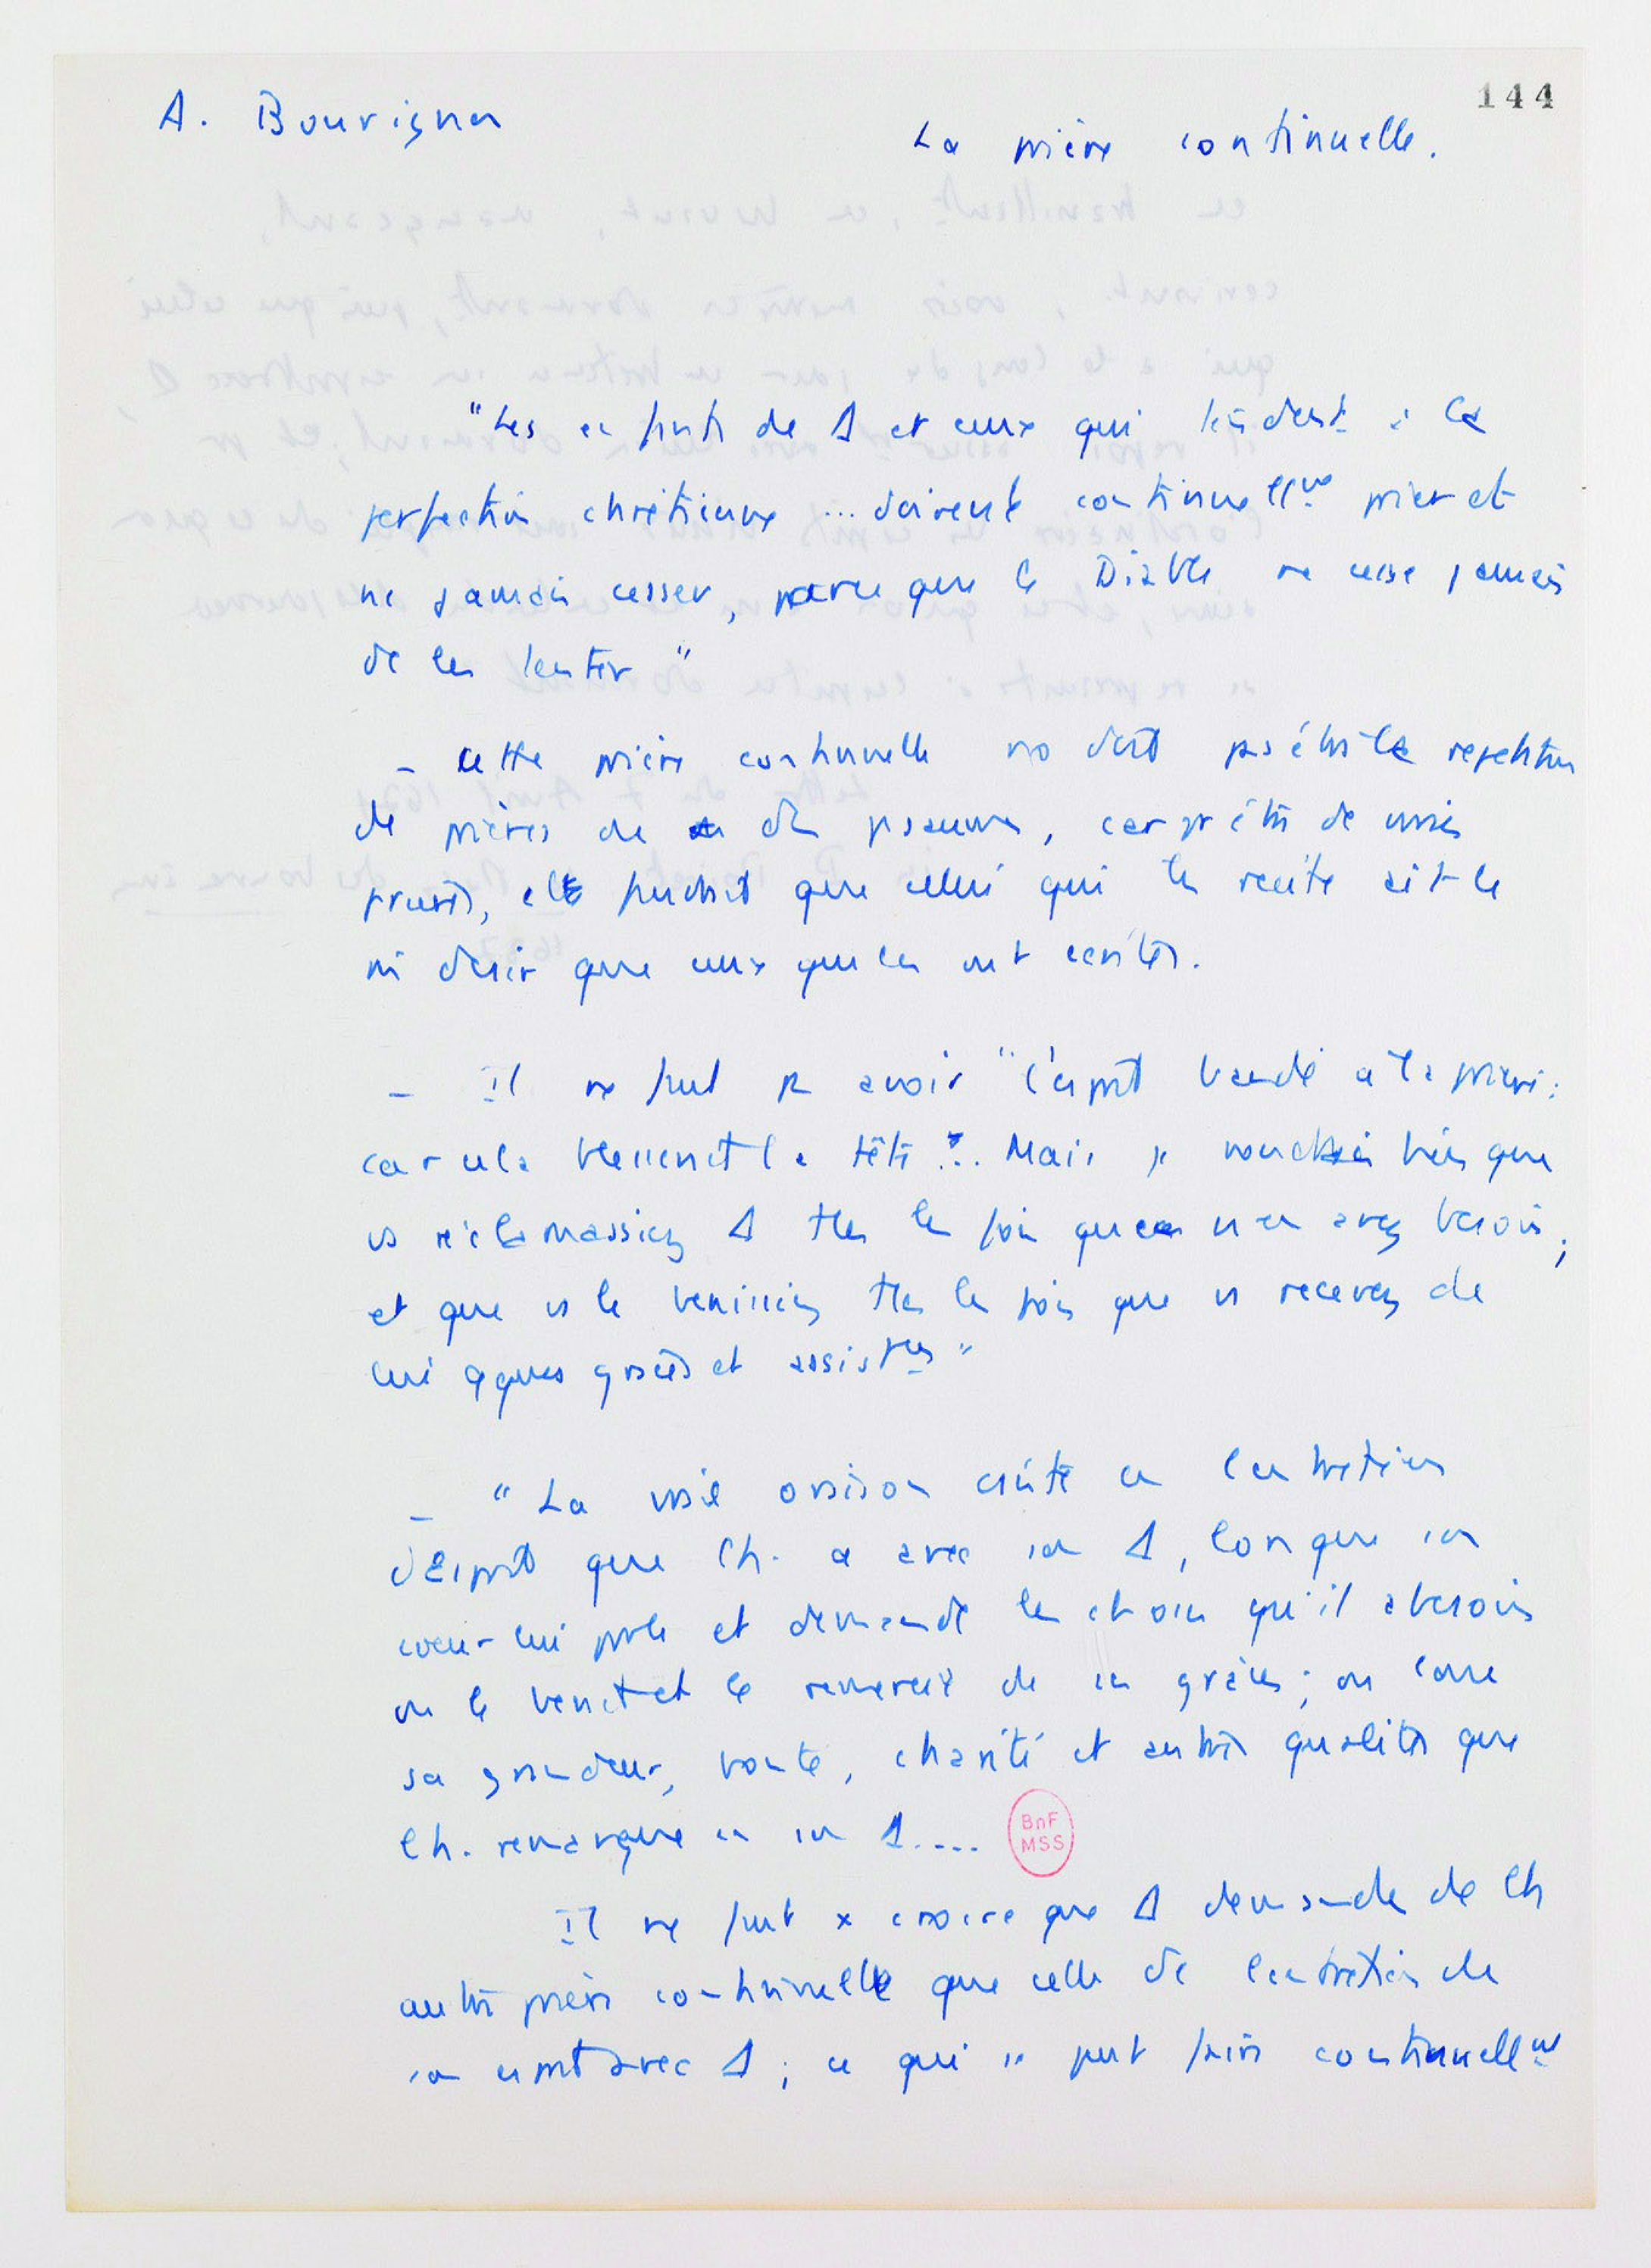 144
A. Bourignon
La prière continuelle.
"Les enfants de Δ et ceux qui tendent à la
perfection chrétienne ... doivent continuellmt prier et
ne jamais cesser, parce que le Diable ne cesse jamais
de les tenter"
- Cette prière continuelle no doit pas être la repetition
de prières de des psaumes, car pr être de vraies
prières, elle faudrait que celui qui les recite ait le
m̂ desir que ceux qui les ont écrites.
- Il ne faut pas avoir "l'esprit bandé à la prière:
car cela blesserait la tête ... Mais je voudrais bien que
vs réclamassiez Δ ttes les fois que vs en avez besoin;
et que vs le benissiez ttes les fois que vs recevez de
lui qques grâces et assistces"
- "La vraie oraison consiste en l'entretien
d'esprit que l'h. a avec son Δ, lorsque son
coeur lui parle et demande les choses qu'il a besoin
ou le benit et le remercie de ses grâces; ou loue
sa grandeur, bonté, charité et autres qualités que
l'h. remarque en son Δ....
BnF
MSS
Il ne faut x croire que Δ demande de l'h
autre prière continuelle que celle de l'entretien de
son esprit avec Δ; ce qui se peut faire continuellmt